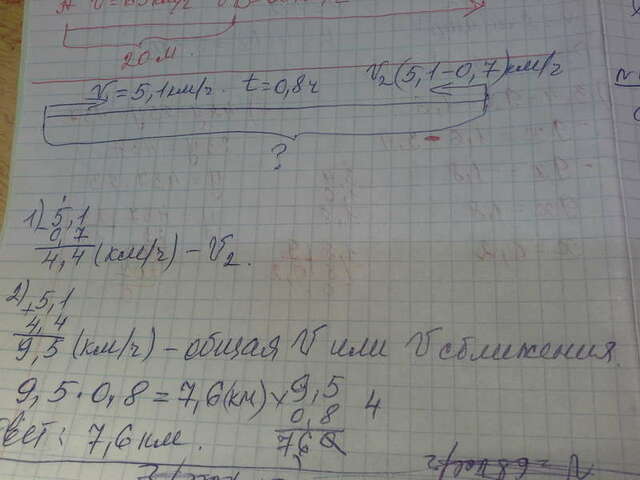 20 м
V₁=5,1 км/ч t=0,8ч V₂(5,1-0,7)км/ч
?
1) 5,1
0,7
4,4 (км/ч) - V₂.
2) 5,1
4,4
9,5 (км/ч) - общая V или V сближения.
9,5·0,8=7,6(км) × 9,5
0,8 4
твет: 7,6 км. 760